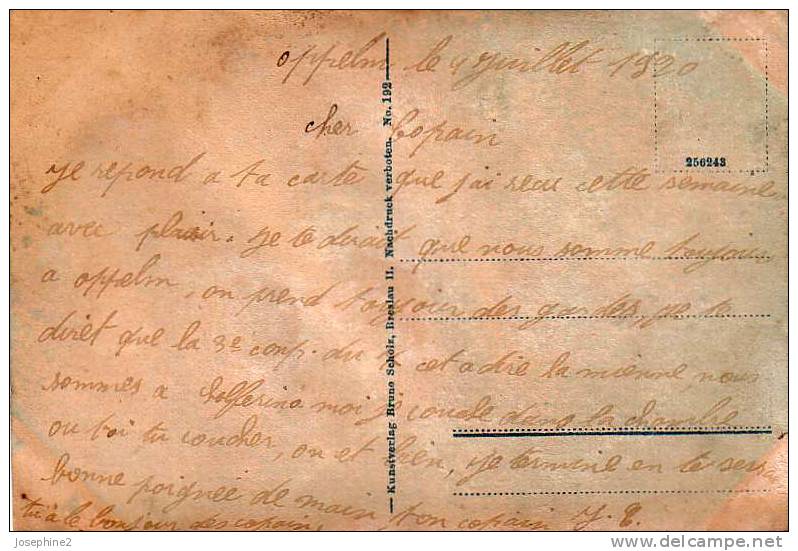 oppelm le 4 Juillet 1920
cher Copain
256243
Je repond a ta carte que j'ai recu cette semaine
avec plaisir. Je te dirait que nous somme toujour
a oppelm, on prend toujour des gardes, je te
diret que la 3e comp. du cet a dire la mienne, nous
sommes a Solferino moi je couche dans la chambre
ou toi tu coucher, on et bien, Je termine en te serr
bonne poignee de main ton copain J.
tu à le bonjour des copain,
Kunstverlag Bruno Scholz, Breslau II. Nachdruck verboten. No. 192
Josephine2
delcampe.net